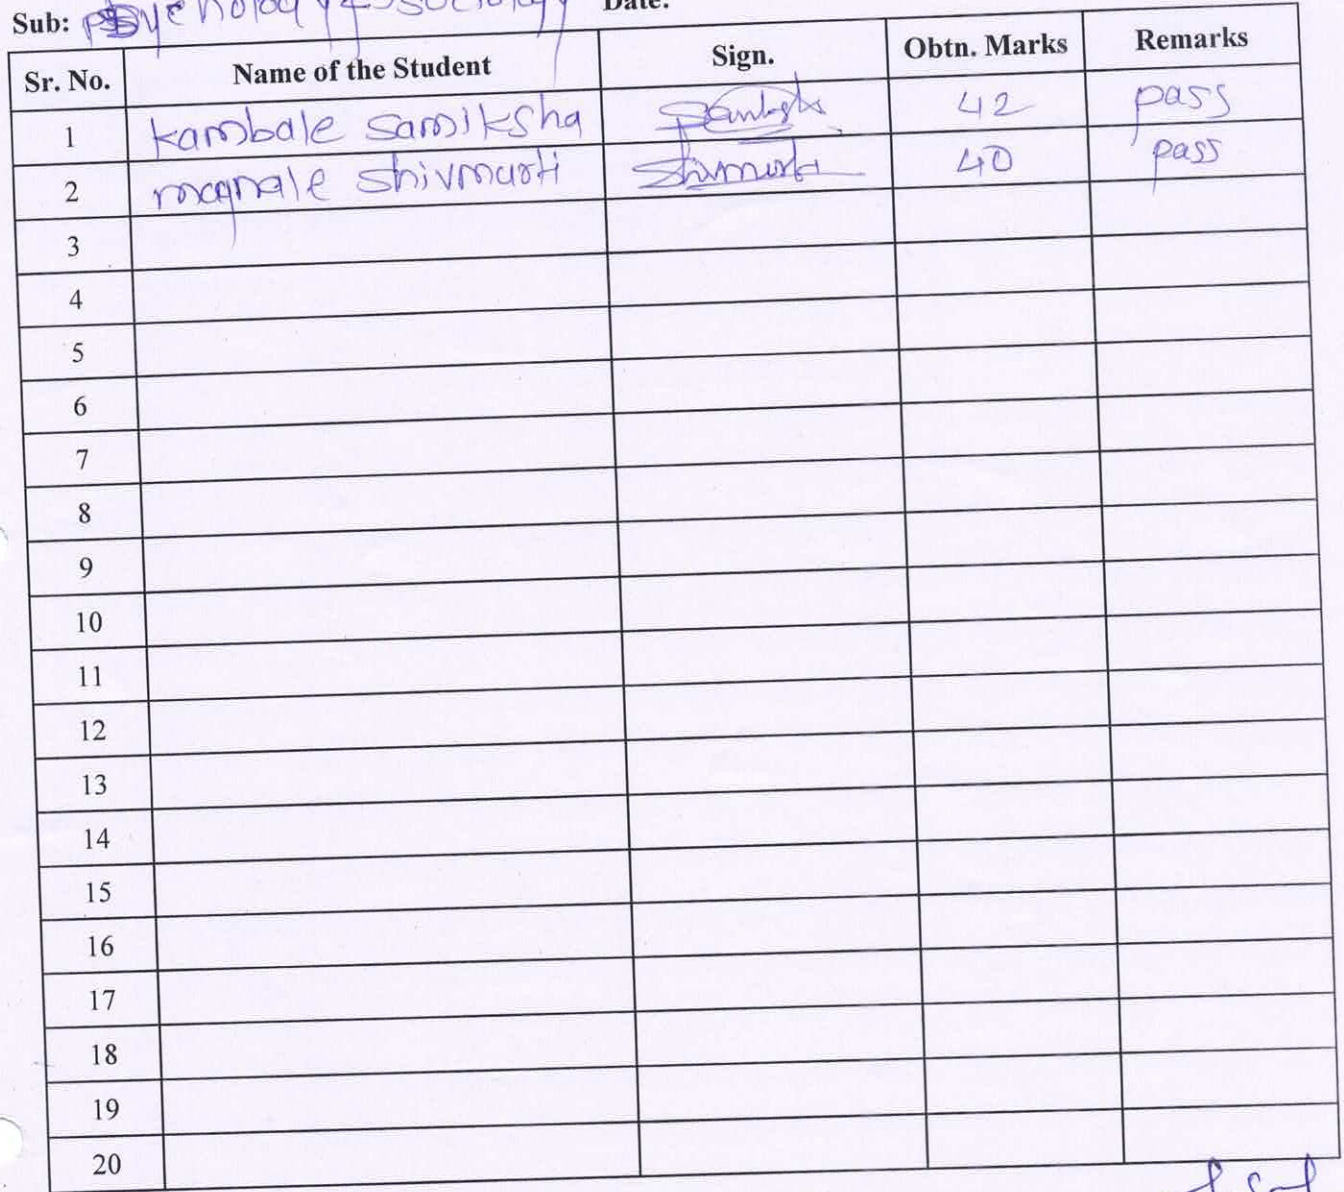 Sub: psychology & sociology Date:
Sr. No. Name of the Student Sign. Obtn. Marks Remarks
1 kambale samiksha 42 pass
2 shivmurti Shivmurti 40 pass
3
4
5
6
7
8
9
10
11
12
13
14
15
16
17
18
19
20